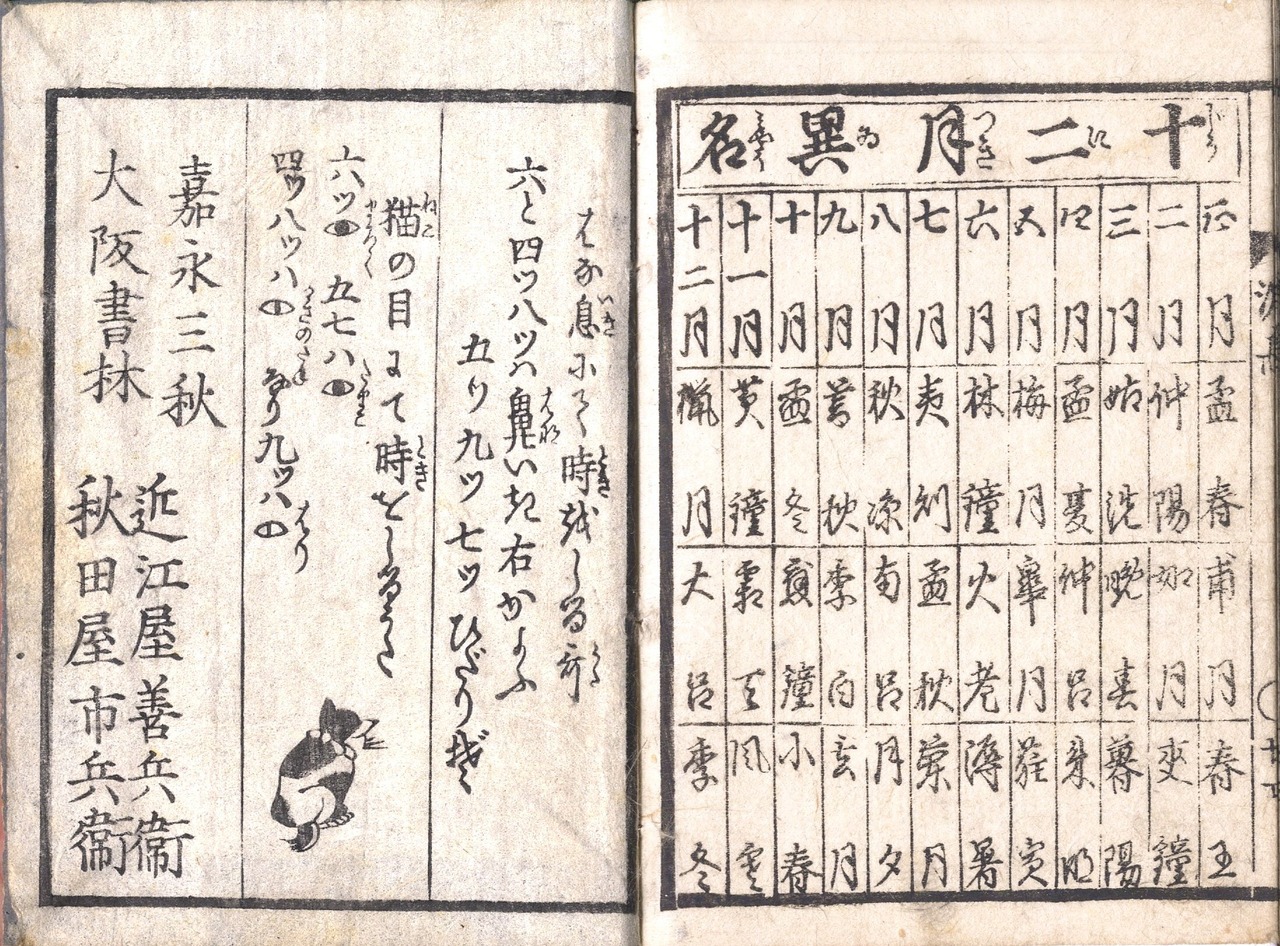 十二月異名
じう に つき ゐ みやう
正月 孟春 甫月 春王
二月 仲陽 如月 夾鐘
三月 姑洗 晩春 暮陽
四月 孟夏 仲呂 朱明
五月 梅月 皐月 蕤賓
六月 林鐘 火老 溽暑
七月 夷則 孟秋 蘭月
八月 秋涼 南呂 月夕
九月 暮秋 季白 玄月
十月 孟冬 應鐘 小春
十一月 黄鐘 霜天 風雪
十二月 臘月 大呂 季冬
はな息にて時越しる哥
六と四ッ八ッハ鼻いき右かよふ
五り九ッ七ッひだりぞ
猫の目にて時をしる
六ッ 五七ハ
四ッ八ッハ なり九ッハ はり
嘉永三秋
大阪書林
近江屋善兵衛
秋田屋市兵衛